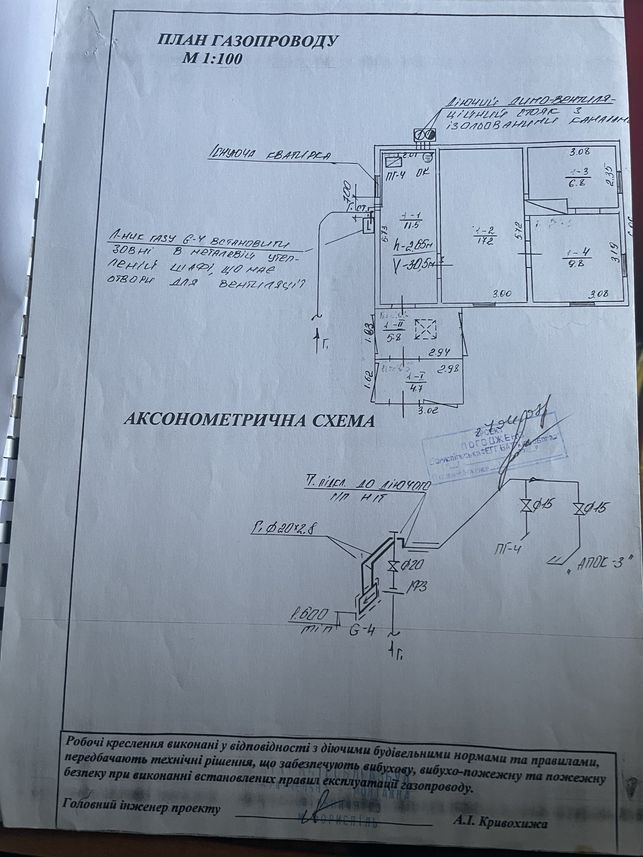 ПЛАН ГАЗОПРОВОДУ
М 1:100
ДІЮЧИЙ ДИМО-ВЕНТИЛЯ-
ЦІЙНИЙ СТОЯК З
ІЗОЛЬОВАНИМИ КАНАЛАМ
ІСНУЮЧА КВАТИРКА
2.01
ПГ-4 ОК
3.08
1-3
6.8
2.35
700
Г.СТ.
Л-НИК ГАЗУ G-4 ВСТАНОВИТИ
ЗОВНІ В МЕТАЛЕВІЙ УТЕП-
ЛЕНІЙ ШАФІ, ЩО МАЄ
ОТВОРИ ДЛЯ ВЕНТИЛЯЦІЇ
1-1
11.5
h-2.65м
V-30.5м
5.73
1-2
17.2
5.72
1-4
9.8
3.19
3.00
3.08
Г₁
1-II
5.8
1.83
2.94
1-I
4.7
1.62
2.98
3.02
АКСОНОМЕТРИЧНА СХЕМА
ПОГОДЖЕНО
П. ПІДКЛ. ДО ДІЮЧОГО
Г/П Н/Т
Г₁ Ф20×2.8
Ф15
Ф15
ПГ-4
"АПОК-3"
Ф20
ІФЗ
Р.600
G-4
Г₁
Робочі креслення виконані у відповідності з діючими будівельними нормами та правилами,
передбачають технічні рішення, що забезпечують вибухову, вибухо-пожежну та пожежну
безпеку при виконанні встановлених правил експлуатації газопроводу.
Головний інженер проекту
А.І. Кривохижа